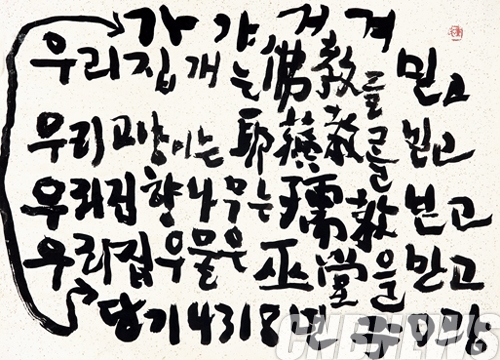 가 갸 거 겨
우리집 개는 佛敎를 믿고
우리 고양이는 耶蘇敎를 믿고
우리집 향나무는 儒敎 믿고
우리집 우물은 巫堂을 믿고
단기4318년 중광
CNBNEWS